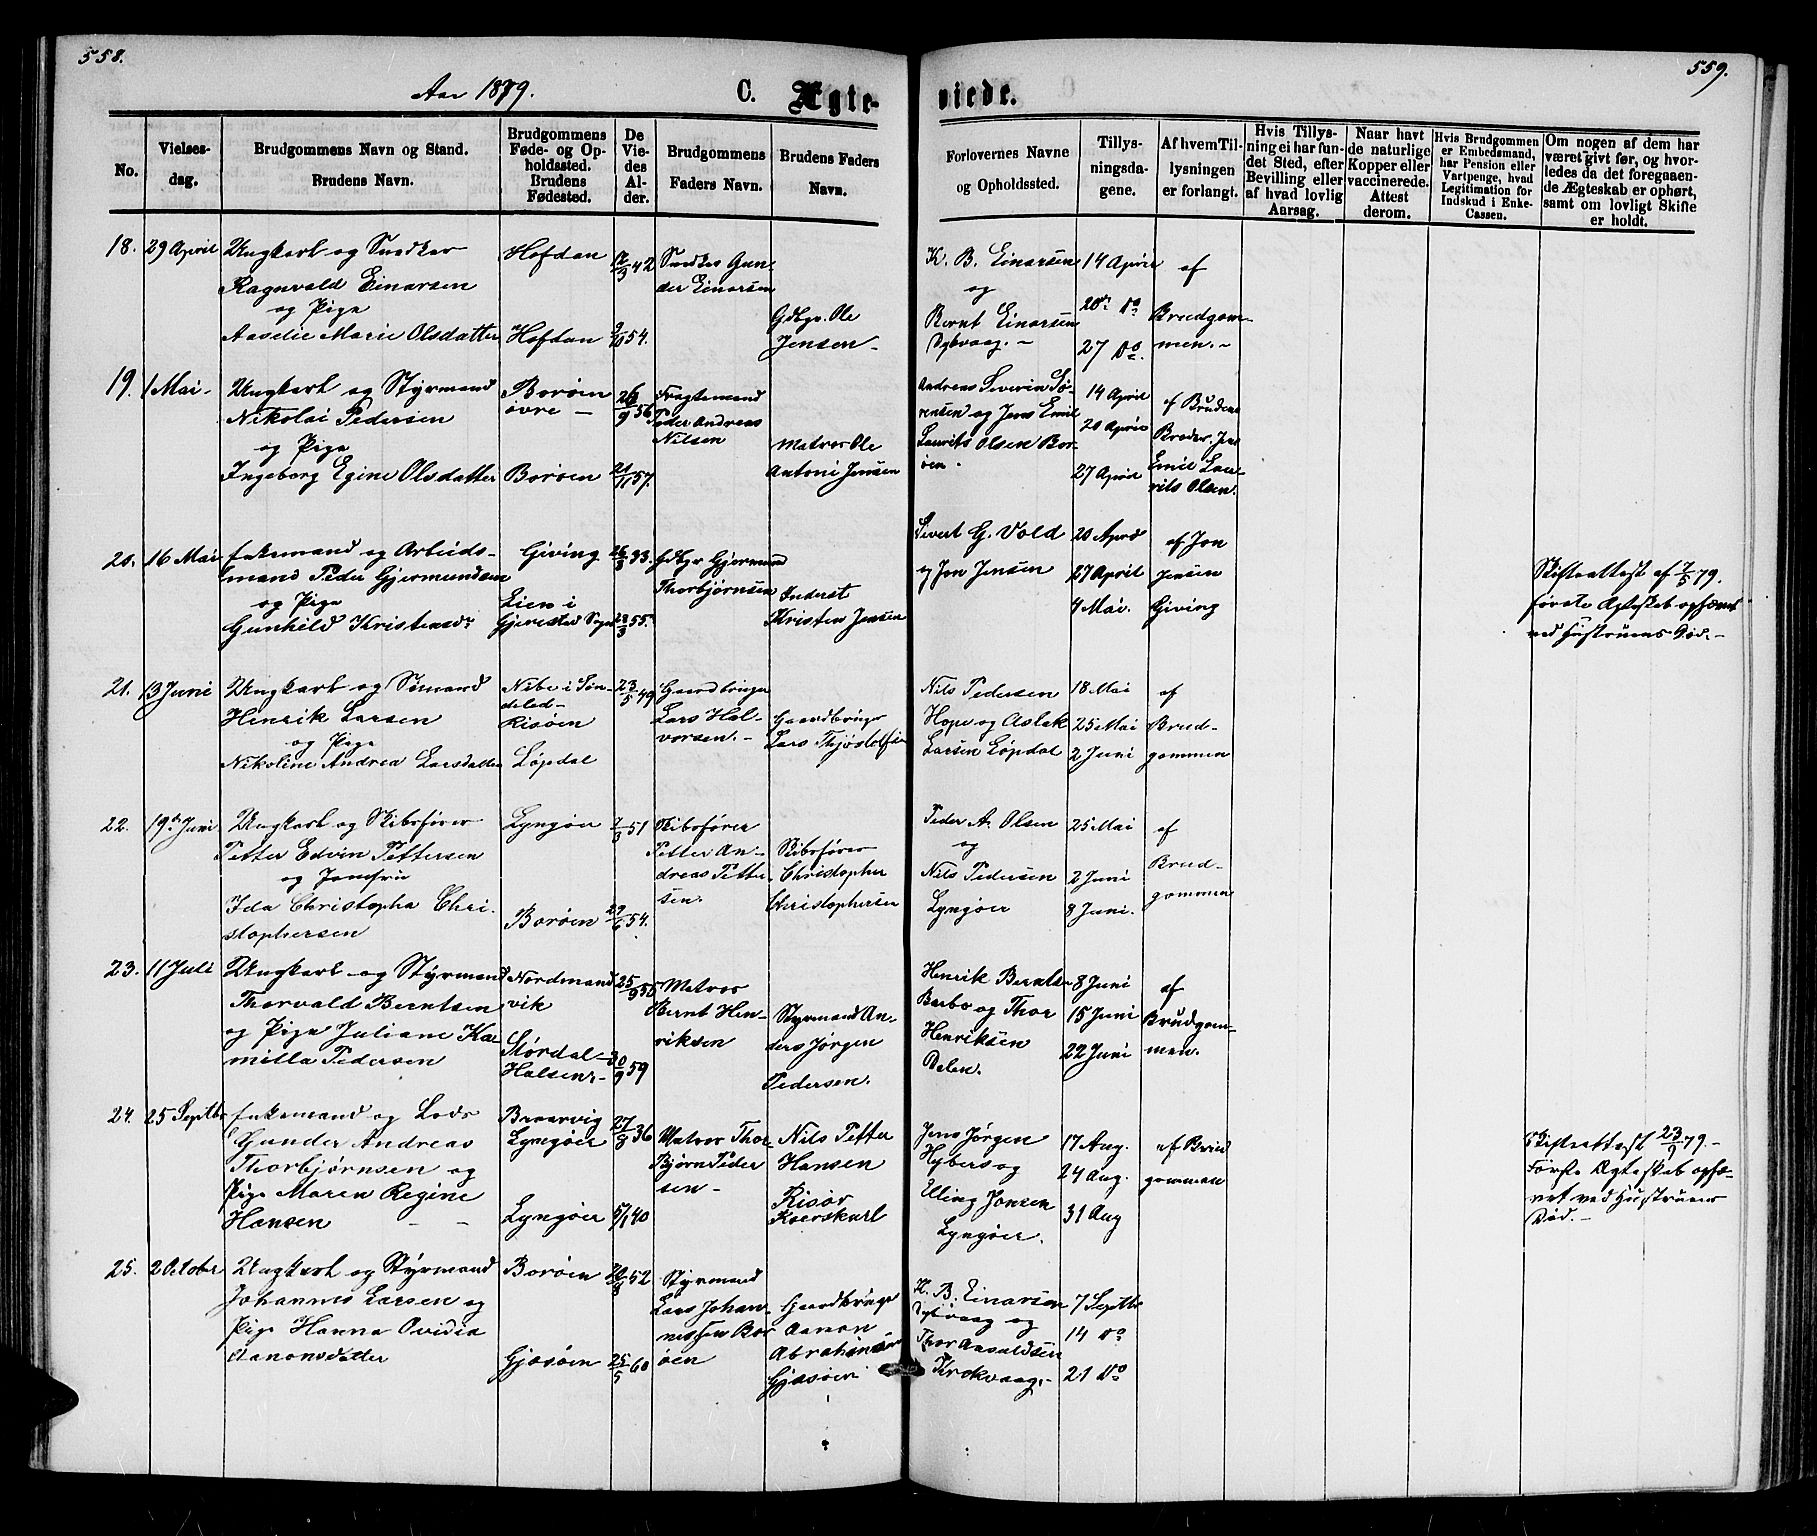 558.
Aar 1879.
C. Ægte-
No.
Vielses-
dag.
Brudgommens Navn og Stand.
Brudens Navn.
Brudgommens
Føde- og Op-
holdssted.
Brudens
Fødested.
De
Vie-
des
Al-
der.
Brudgommens
Faders Navn.
Brudens Faders
Navn.
18. 29 April
Ungkarl og Snedker
Ragnvald Einarsen
og Pige
Aaselie Marie Olsdatter
Hofdan
Hofdan
12/3 42
9/10 54.
Snedker Gun-
der Einarsen
Gdbgr. Ole
Jensen
19. 1 Mai
Ungkarl og Styrmand
Nikolai Pedersen
og Pige
Ingeborg Egine Olsdatter
Borøen
øvre
Borøen
26/9 56
21/11 57.
Fragtemand
Peder Andreas
Nilsen
Matros Ole
Antoni Jensen
20. 16 Mai
Enkemand og Arbeids-
mand Peder Gjermundsen
og Pige
Gunhild Kristensdr
Giving
Lien i
Gjerestad Sogn
26/3 33.
28/3 55.
Gdbgr Gjermund
Thorbjørnsen
Inderst
Kristen Jensen
21. 13 Juni
Ungkarl og Sømand
Henrik Larsen
og Pige
Nikoline Andrea Larsdatter
Nibe i Søn-
deled
Risøen
Løpdal
23/5 49
Gaardbruger
Lars Hal-
vorsen.
Gaardbruger
Lars Thjøstolfsen
22. 19de Juni
Ungkarl og Skibsfører
Petter Edvin Pettersen
og Jomfru
Ida Christopha Chri-
stophersen
Lyngøer
Borøen
7/3 51
29/6 54.
Skibsfører
Petter An-
dreas Petter-
sen.
Skibsfører
Christopher
Christophersen
23. 11 Juli
Ungkarl og Styrmand
Thorvald Berntsen
og Pige Juliane Ka-
milla Pedersen
Nordmand
vik
Størdal-
Halsen
25/9 56
30/9 59
Matros
Bernt Hen-
riksen
Styrmand An-
ders Jørgen
Pedersen.
24. 25 Septbr
Enkemand og Lods
Gunder Andreas
Thorbjørnsen og
Pige Maren Regine
Hansen
Braarvig
Lyngøer
Lyngøer
27/8 36
5/1 40
Matros Thor-
Bjørn Peder
sen
Nils Petter
Hansen
Risør
Kaerskarl
25. 2 October
Ungkarl og Styrmand
Johannes Larsen og
Pige Hanna Ovidia
Aanonsdatter
Borøen
Gjøsøen
20/8 52
25/5 60
Styrmand
Lars Johan-
nessen Bor
øen
Gaardbruger
Aanon
Abrahamsen
Gjøsøen
559.
viede.
Forlovernes Navne
og Opholdssted.
Tillys-
ningsda-
gene.
Af hvem Til-
lysningen
er forlangt.
Hvis Tillys-
ning ei har fun-
det Sted, efter
Bevilling eller
af hvad lovlig
Aarsag.
Naar havt
de naturlige
Kopper eller
vaccinerede.
Attest
derom.
Hvis Brudgommen
er Embedsmand,
har Pension eller
Vartpenge, hvad
Legitimation for
Indskud i Enke-
Cassen.
Om nogen af dem har
været givt før, og hvor-
ledes da det foregaaen-
de Ægteskab er ophørt,
samt om lovligt Skifte
er holdt.
K. B. Einarsen
og
Bernt Einarsen
Dybvaag.
14 April
20de Do
27 Do
af
Brudgom-
men.
Andreas Severin Sø-
rensen og Jens Emil
Laurits Olsen Bor-
øen.
14 April
20 April
27 April
af Brudens
Broder Jens
Emil Lau-
rits Olsen.
Sivert G. Vold
og Jon Jensen
20 April
27 April
4 Mai.
af Jon
Jensen
Giving
Skifteattest af 7/5 79.
første Ægteskab ophævet
ved Hustruens Død.
Nils Pedersen
Hope og Aslak
Larsen Løpdal
18 Mai
25 Mai
2 Juni
af
Brud-
gommen
Peder A. Olsen
og
Nils Pedersen
Lyngøer
25 Mai
2 Juni
8 Juni.
af
Brud-
gommen
Henrik Berntsen
Barbo og Thor
Henriksen
Dalen.
8 Juni
15 Juni
22 Juni
af
Brudgom-
men.
Jens Jørgen
Hybers og
Elling Jonsen
Lyngøer.
17 Aug.
24 Aug.
31 Aug
af Brud
gommen
Skifteattest 23/9 79.
Første Ægteskab ophæ-
vet ved Hustruens
Død.
K. B. Einarsen
Dybvaag og
Thor Aasuldsen
Krokvaag.
7 Septbr
14 Do
21 Do